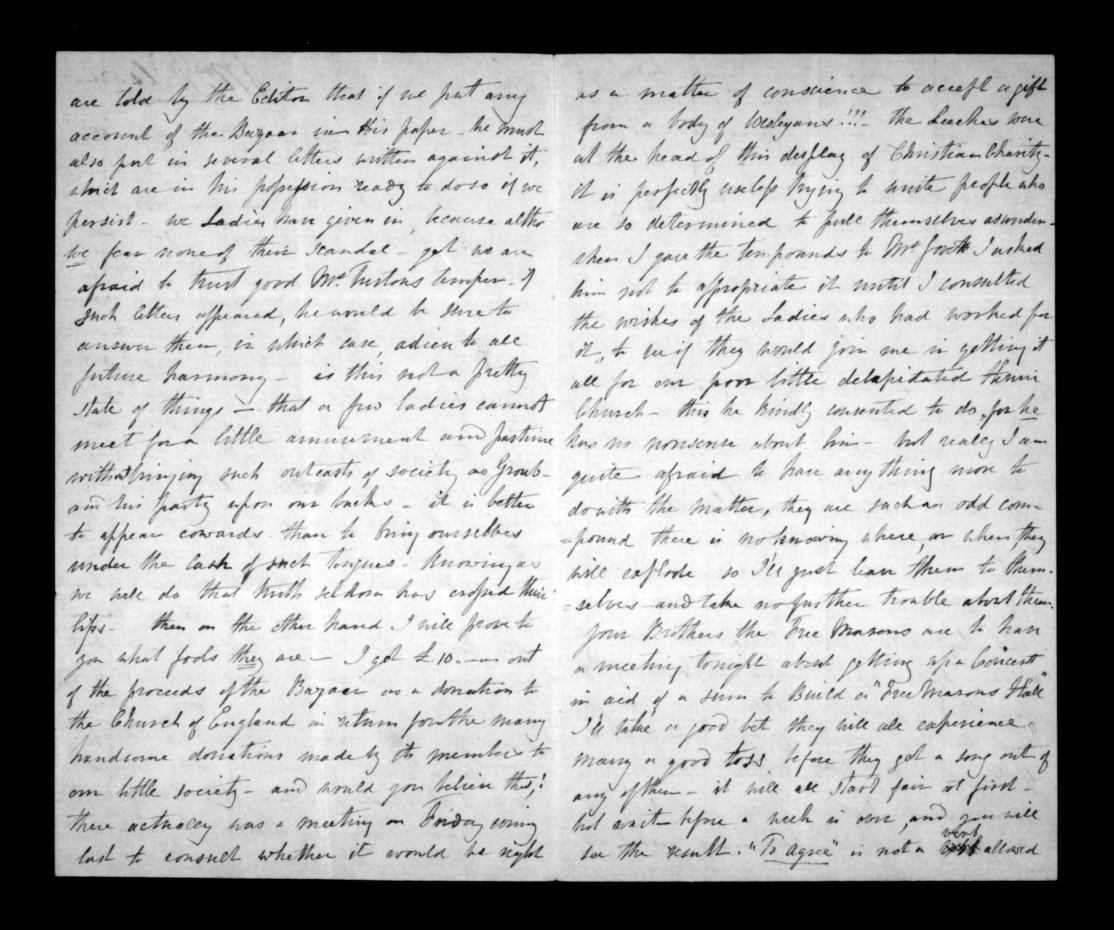 are told by the Editor that if we put any
account of the Bazaar in His paper - he must
also put in several letters written against it,
which are in his possession ready to do so if we
persist - we Ladies have given in, because altho
we fear none of their scandal - yet we are
afraid to trust good Mr. temper - if
such letters appeared, he would be sure to
answer them, in which case, adieu to all
future harmony - is this not a pretty
state of things - that a few ladies cannot
meet for a little amusement and pastime
without bringing such outcasts of society as
and his party upon our backs - it is better
to appear cowards - than to bring ourselves
under the lash of such tongues - Knowing as
we well do that truth seldom has crossed their
lips - then on the other hand I will prove to
you what fools they are - I got £10.. - out
of the proceeds of the Bazaar as a donation to
the Church of England in return for the many
handsome donations made by its member to
our little society - and would you believe this,!
there actually was a meeting on Friday evening
last to consult whether it would be right
as a matter of conscience to accept a gift
from a body of Wesleyans!!! - the were
at the head of this display of Christian Charity -
it is perfectly useless trying to unite people who
are so determined to pull themselves asunder -
when I gave the ten pounds to Mr I asked
him not to appropriate it until I consulted
the wishes of the Ladies who had worked for
it, to see if they would join me in getting it
all for our poor little delapidated
Church - this he kindly consented to do, for he
has no nonsense about him - but really I am
quite afraid to have any thing more to
do with the matter, they are such an odd com-
=pound there is no knowing where, or when, they
will explode so I'll just leave them to them-
=selves - and take no further trouble about them.
Your Brothers the Free Masons are to have
a meeting tonight about getting up a Concert
in aid of a sum to Build a "Free Masons Hall"
I'll take a good bet they will all experience
many a good toss before they get a song out of
any of them - it will all start fair at first -
but wait before a week is over, and you will
see the result. "To agree" is not a verb allowed